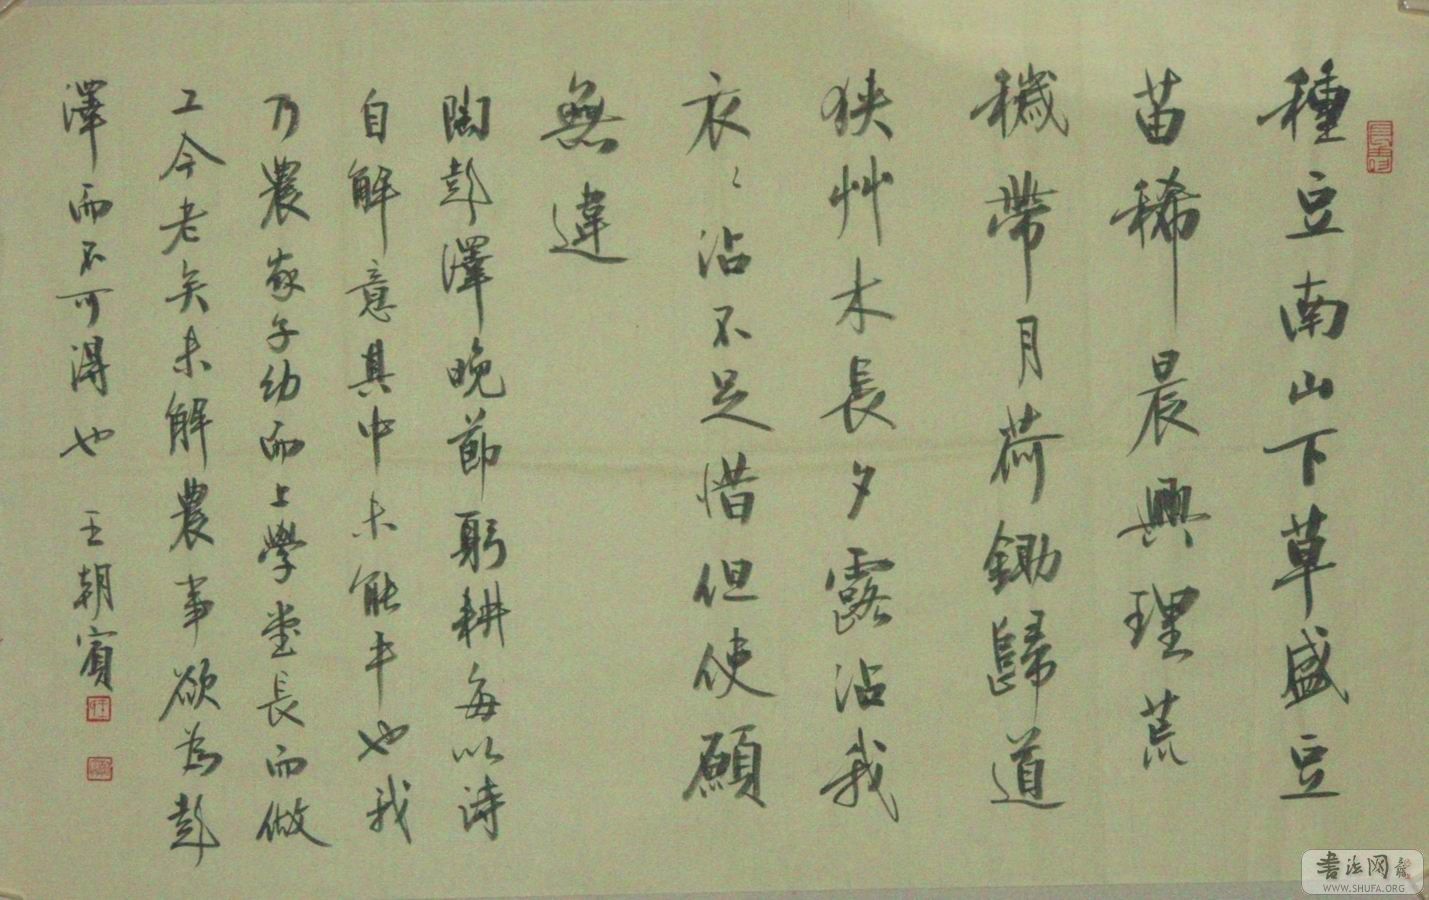 種豆南山下草盛豆
苗稀晨興理荒
穢帶月荷鋤歸道
狹艸木長夕露沾我
衣〻沾不足惜但使願
無違
陶彭澤晚節躬耕每以詩
自解意其中未能平也我
乃農家子幼而上學堂長而做
工今老矣未解農事欲為彭
澤而不可得也 王朝賓
書法网
WWW.SHUFA.ORG